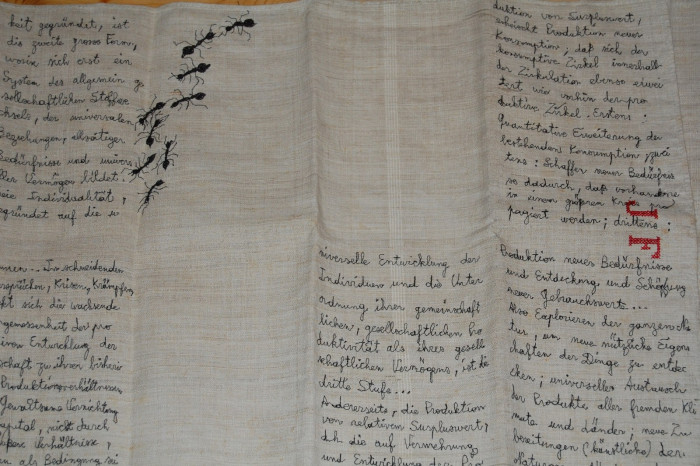 keit gegründet, ist
die zweite grosse Form,
worin sich erst ein
System des allgemein g
sellenhaftlichen Stoffwe
chsels, der universalen
Beziehungen, allseitiger
Bedürfnisse und univers
eller Vermögen bildet.
reie Individualität,
egründet auf die u
men... In schneidenden
sprüchen, Krisen, Krämpfen
kt sich die wachsende
gemessenheit der pro
iven Entwicklug der
schaft zu ihren bisheri
Produktionsverhältnissen
Gewaltsame Vernichtung
apital, nicht durch
Verhältnisse,
n als Bedingung sei
niverselle Entwicklung der
Individuen und die Unter
ordnung ihrer gemeinschaft
lichen, gesellschaftlichen Pro
duktivität als ihres gesell
schaftlichen Vermögens, ist die
dritte Stufe...
Andererseits, die Produktion
von relativem Surpluswert,
dh die auf Vermehrung
und Entwicklung der Pro
duktion von Surpluswert,
schließt Produktion neuer
Konsumption; daß sich der
Konsumptive Zirkel innerhalb
der Zirkulation ebenso erwei
tert wie vorhin der pro
duktive Zirkel. Erstens:
Quantitative Erweiterung der
bestehenden Konsumption; zwei
tens: Schaffen neuer Bedürfniss
so dadurch, daß vorhandene
in einem größren Kreis pro
pagiert werden; drittens:
JF
Produktion neuer Bedürfnisse
und Entdeckung und Schöpfung
neuer Gebrauchswerte...
Also Explorieren der ganzen Na
tur, um neue nützliche Eigens
chaften der Dinge zu entdec
cken; universeller Austausch
der Produkte aller fremden Kli
mate und Länder; neue Zu
bereitungen (künstliche) der